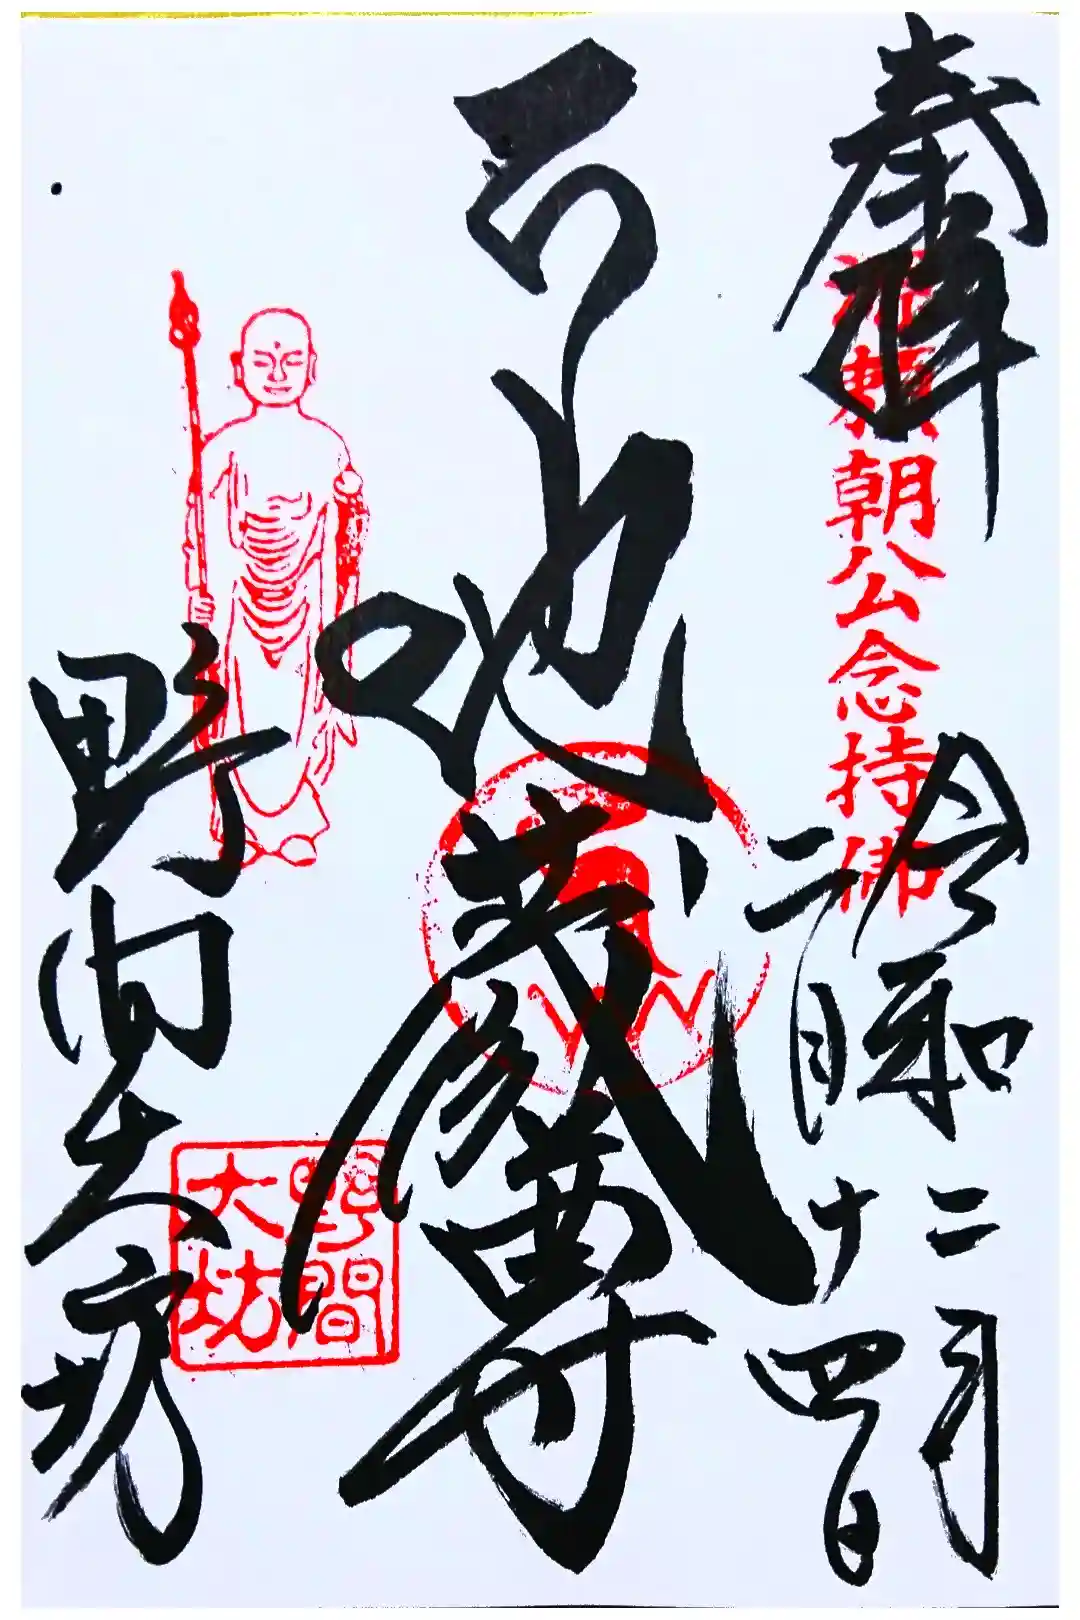 奉拝
源頼朝公念持佛
令和二年
二月十四日
地蔵尊
野間大坊
野間
大坊